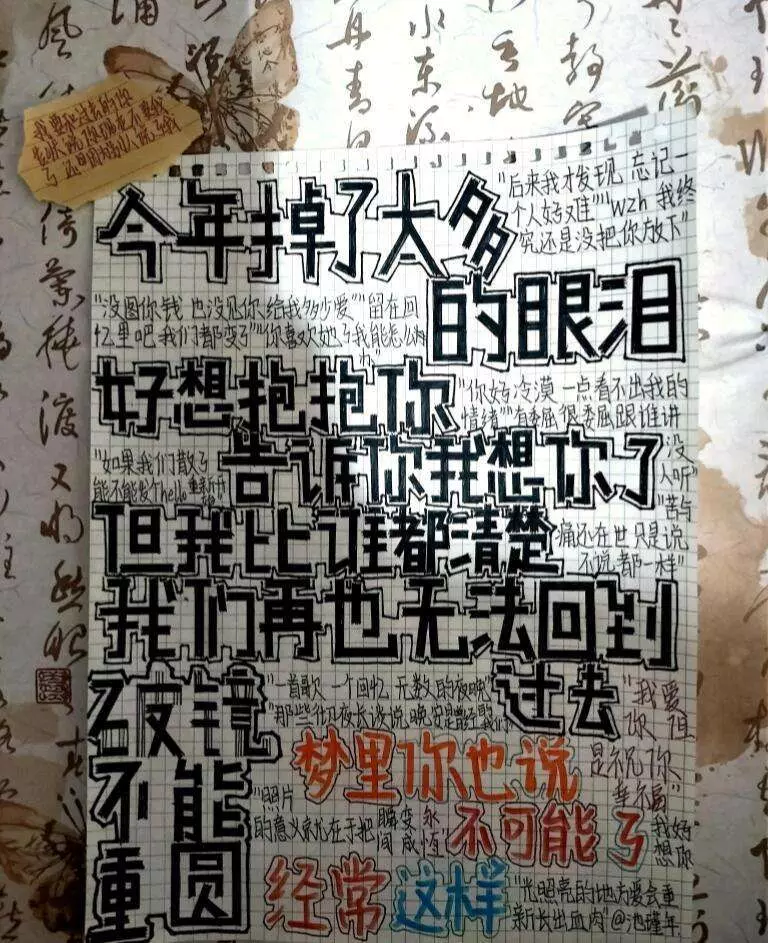 "后来我才发现 忘记一
个人好难""Wzh 我终
究还是没把你放下"
今年掉了太多
的眼泪
"没图你钱 也没见你给我多少爱""留在回
忆里吧我们都变了""你喜欢她了我能怎么办
好想抱抱你
"你好冷漠 一点看不出我的
情绪""有委屈 很委屈跟谁讲
没人听"
告诉你我想你了
"如果我们散了
能不能发个hello
"苦与
痛还在世 只是说
不说都一样"
但我比谁都清楚
我们再也无法回到
过去
"一首歌 一个回忆 无数的夜晚"
"那些彻夜长谈说晚安是曾经我们
"我爱
你 但
是祝你
幸福"
破镜
不能
重圆
梦里你也说
不可能了
"照片
的意义就在于把瞬间变成永恒"
我好
想你
经常这样
"光照亮的地方爱会重
新长出血肉"@池瑾年